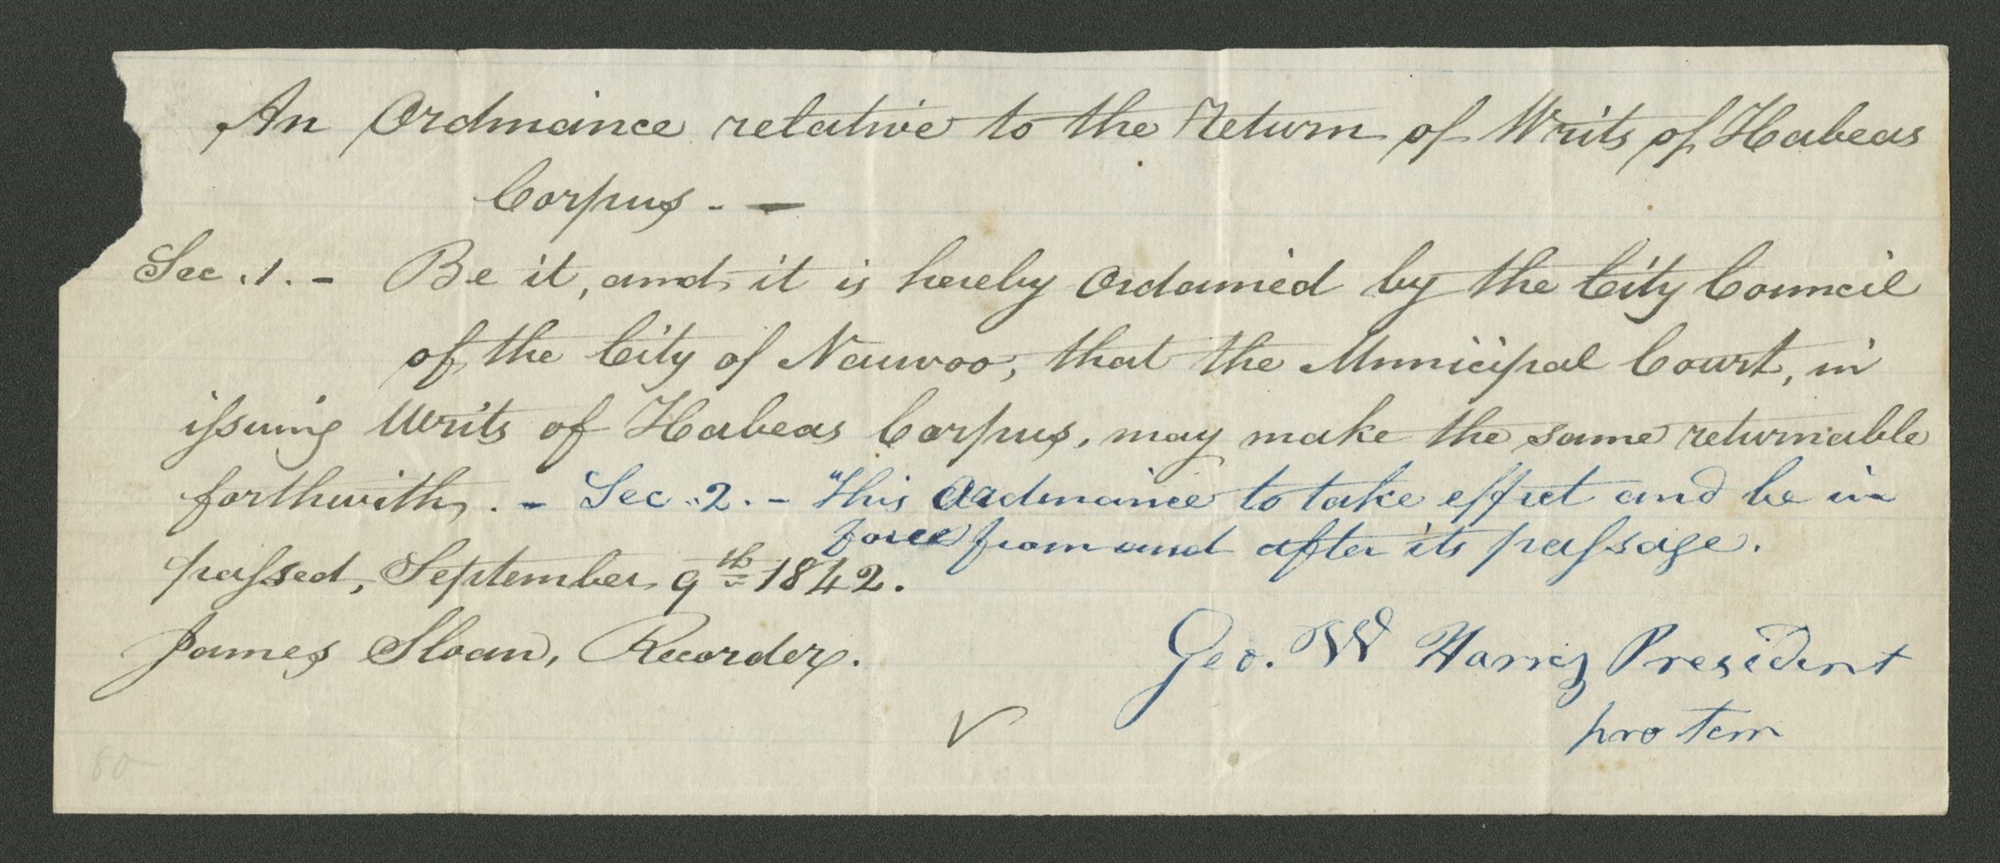 An Ordinance relative to the Return of Writs of Habeas
Corpus. —
Sec. 1. - Be it, and it is hereby Ordained by the City Council
of the City of Nauvoo, that the Municipal Court, in
issuing Writs of Habeas Corpus, may make the same returnable
forthwith. - Sec. 2. - This Ordinance to take effect and be in
force from and after its passage.
passed, September 9th 1842.
James Sloan, Recorder.
Geo. W Harris President
pro tem
60